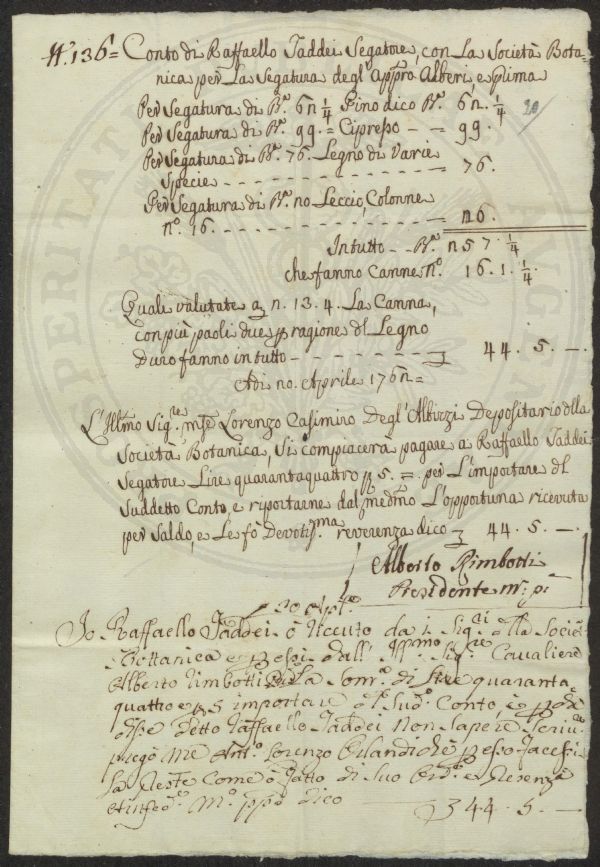 N.° 136= Conto di Raffaello Taddei Segatore, con La Società Bota-
nica per La Segatura degl'app.ro Alberi, e prima
Per Segatura di B.a 6n 1/4 Pino dico B.a 6n. 1/4
20
Per Segatura di B.a 99. = Cipresso - - 99.
Per Segatura di B.a 76. Legno di Varie
Specie - - - - - - - - 76.
Per Segatura di B.a no Leccio, Colonne
n.° 16. - - - - - - - - n6.
In tutto - - B.a n57. 1/4
che fanno Canne N.° 16. 1. 1/4.
Quali valutate a n. 13. 4. La Canna,
con più paoli due p ragione dl Legno
Duro fanno in tutto - - - - - - 44. 5. -.
Adi no. Aprile 176n=
L'Illmo Sig.re Lorenzo Casimiro Degl'Albizzi Depositario dlla
Società Botanica, Si compiacerà pagare a Raffaello Taddei
Segatore Lire quarantaquattro p 5. =. per L'importare dl
Suddetto Conto, e riportarne dal med.mo L'opportuna ricevuta
per Saldo, e Le fò Devotis.ma reverenza dico 44. 5. -.
Alberto Rimbotti
Presidente m.o p.a
Io Raffaello Taddei ò riceuto da i Sig.ri dlla Società
Bottanica e p essi dall' Sig.re Cavaliere
Alberto Rimbotti La Som.a di Lire quaranta
quattro e p 5 importare dl Sud.o Conto, e p
detto Raffaello Taddei Non Sapere Scriu.e
pregò Me Ant.o Lorenzo Orlandi che p esso facessi
La Preste Come ò fatto di Suo Ord.e e Presenza
M.o pp.a dico 44. 5 -